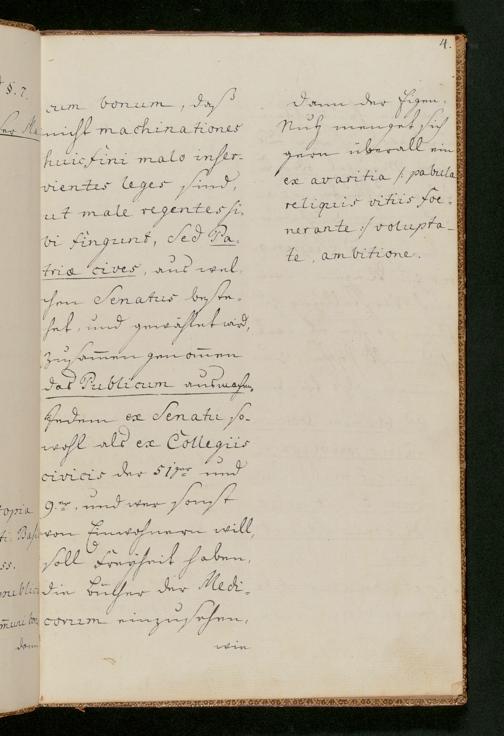 4.
cum bonum, daß
nicht machinationes
huic fini malo inser-
vientes leges sind,
ut male regentes si-
bi fingunt, sed Pa-
triæ cives, aus wel-
chen Senatus beste-
het, und gewählet wird,
zusam̄en genom̄en
das Publicum ausmachen
Jedem ex Senatu so-
wohl als ex Collegiis
civicis der 51ger und
9.er, und wer sonst
von Einwohnern will,
soll Freyheit haben,
die Bücher der Medi-
corum einzusehen,
wie
dann der Eigen-
Nutz menget sich
gern überall ein
ex avaritia /: pabula
reliquis vitiis foe-
nerante :/ volupta-
te, ambitione.
§. 7.